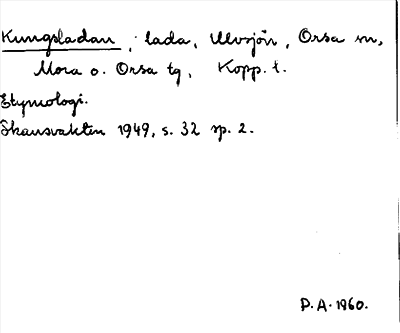 Kungsladan, lada, Ulvsjön, Orsa sn,
Mora o. Orsa tg, Kopp. l.
Etymologi.
Skansvakten 1949, s. 32 sp. 2.
P.A. 1960.